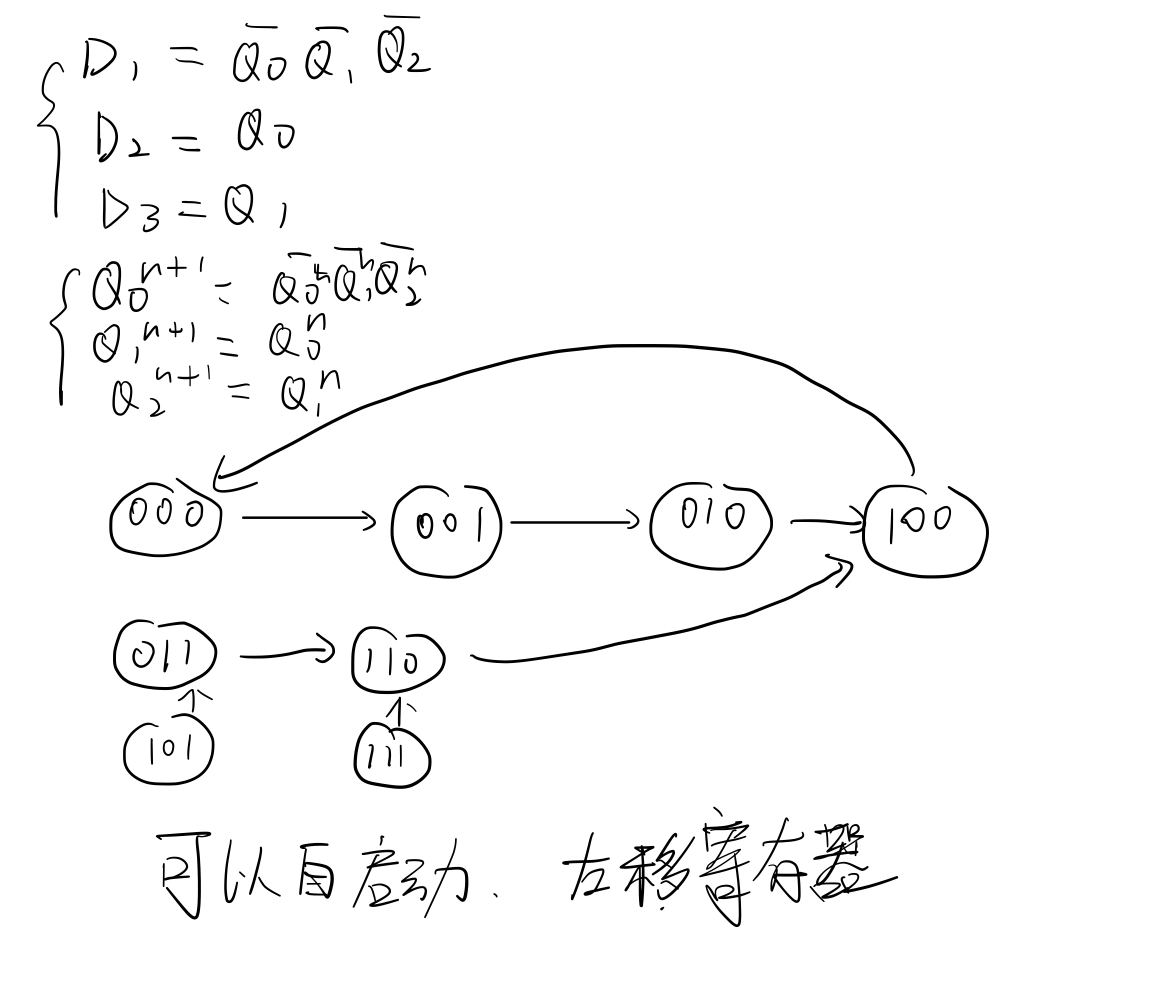 D₁ = Q̅₀ Q̅₁ Q̅₂
D₂ = Q₀
D₃ = Q₁
Q₀ⁿ⁺¹ = Q̅₀ⁿ Q̅₁ⁿ Q̅₂ⁿ
Q₁ⁿ⁺¹ = Q₀ⁿ
Q₂ⁿ⁺¹ = Q₁ⁿ
000 → 001 → 010 → 100
011 → 110
101 111
可以自启动. 左移寄存器